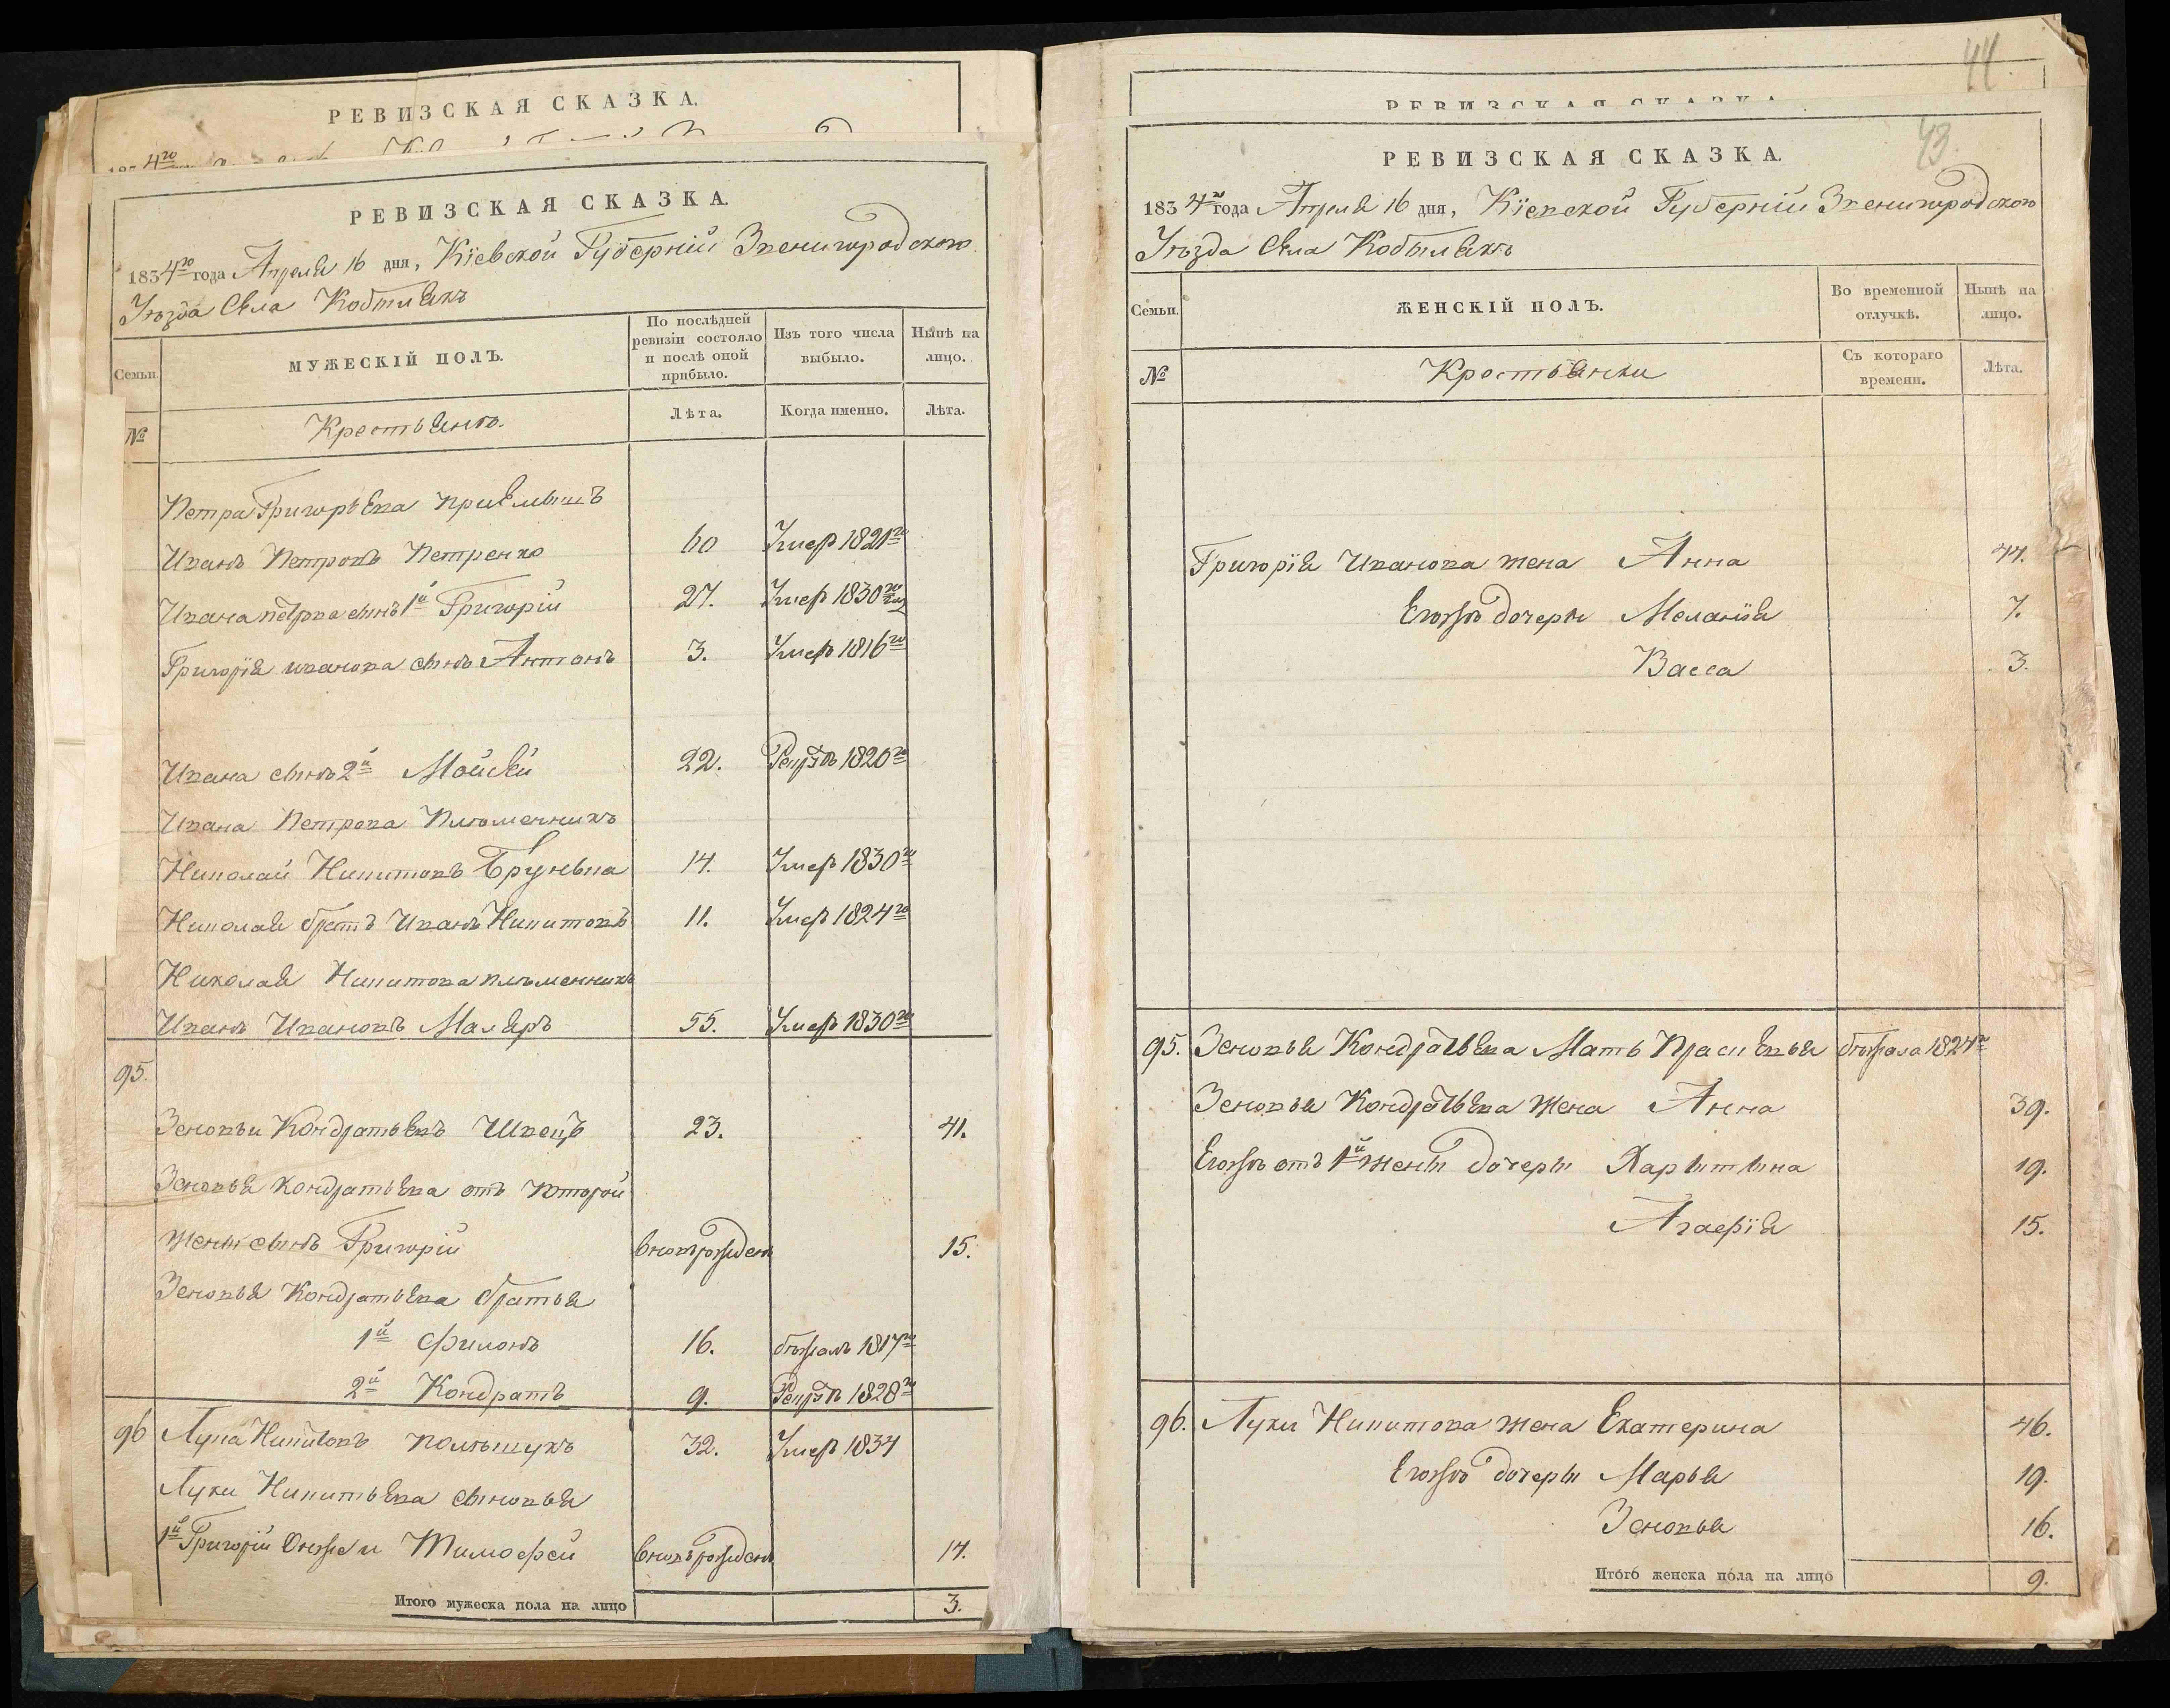 РЕВИЗСКАЯ СКАЗКА.
РЕВИЗСКАЯ СКАЗКА.
1834го года Апреля 16 дня, Кіевской Губерніи Звенигородского
Уѣзда Села Кобыляк
Семьи.
МУЖЕСКІЙ ПОЛЪ.
По послѣдней ревизіи состояло и послѣ оной прибыло.
Изъ того числа выбыло.
Нынѣ на лицо.
№
Крестьяне.
Лѣта.
Когда именно.
Лѣта.
Петра Григорьева
Иванъ Петровъ Петренко 60 Умер 1821го
Ивана Петрова сынъ 1й Григорій 27. Умер 1830го
Григорія Иванова сынъ Антонъ 3. Умеръ 1816го
Ивана сынъ 2й Мойсей 22. 1820го
Ивана Петрова племенникъ
Николай Никитовъ 14. Умер 1830го
Николая братъ Иванъ Никитовъ 11. Умер 1824го
Николая Никитова племенникъ
Иванъ Ивановъ Маляръ 55. Умеръ 1830го
95.
Зеновъи Кондратьевъ Швецъ 23. 41.
Зеновья Кондратьева отъ второй
жены сынъ Григорій вновьрожден 15.
Зеновья Кондратьева братья
1й Филонъ 16. бѣжалъ 1817го
2й Кондратъ 9. 1828го
96 Лука Никитовъ Полѣщукъ 32. Умер 1834
Луки Никитьева сыновья
1й Григорій Онже и Тимофей вновьрожден 14.
Итого мужеска пола на лицо 3.
44.
РЕВИЗСКАЯ СКАЗКА
43.
РЕВИЗСКАЯ СКАЗКА.
1834го года Апреля 16 дня, Кіевской Губерніи Звенигородского
Уѣзда Села Кобылякъ
Семьи.
ЖЕНСКІЙ ПОЛЪ.
Во временной отлучкѣ.
Нынѣ на лицо.
№
Крестьянки
Съ котораго времени.
Лѣта.
Григорія Иванова жена Анна 44.
Егожъ дочери Меланія 7.
Васса 3.
95. Зеновья Кондратьева Мать Прасковья бѣжала 1824го
Зеновья Кондратьева жена Анна 39.
Егожъ отъ 1й жены дочери Харытына 19.
Агафія 15.
96. Луки Никитова жена Екатерина 46.
Егожъ дочери Марья 19.
Зеновья 16.
Итого женска пола на лицо 9.